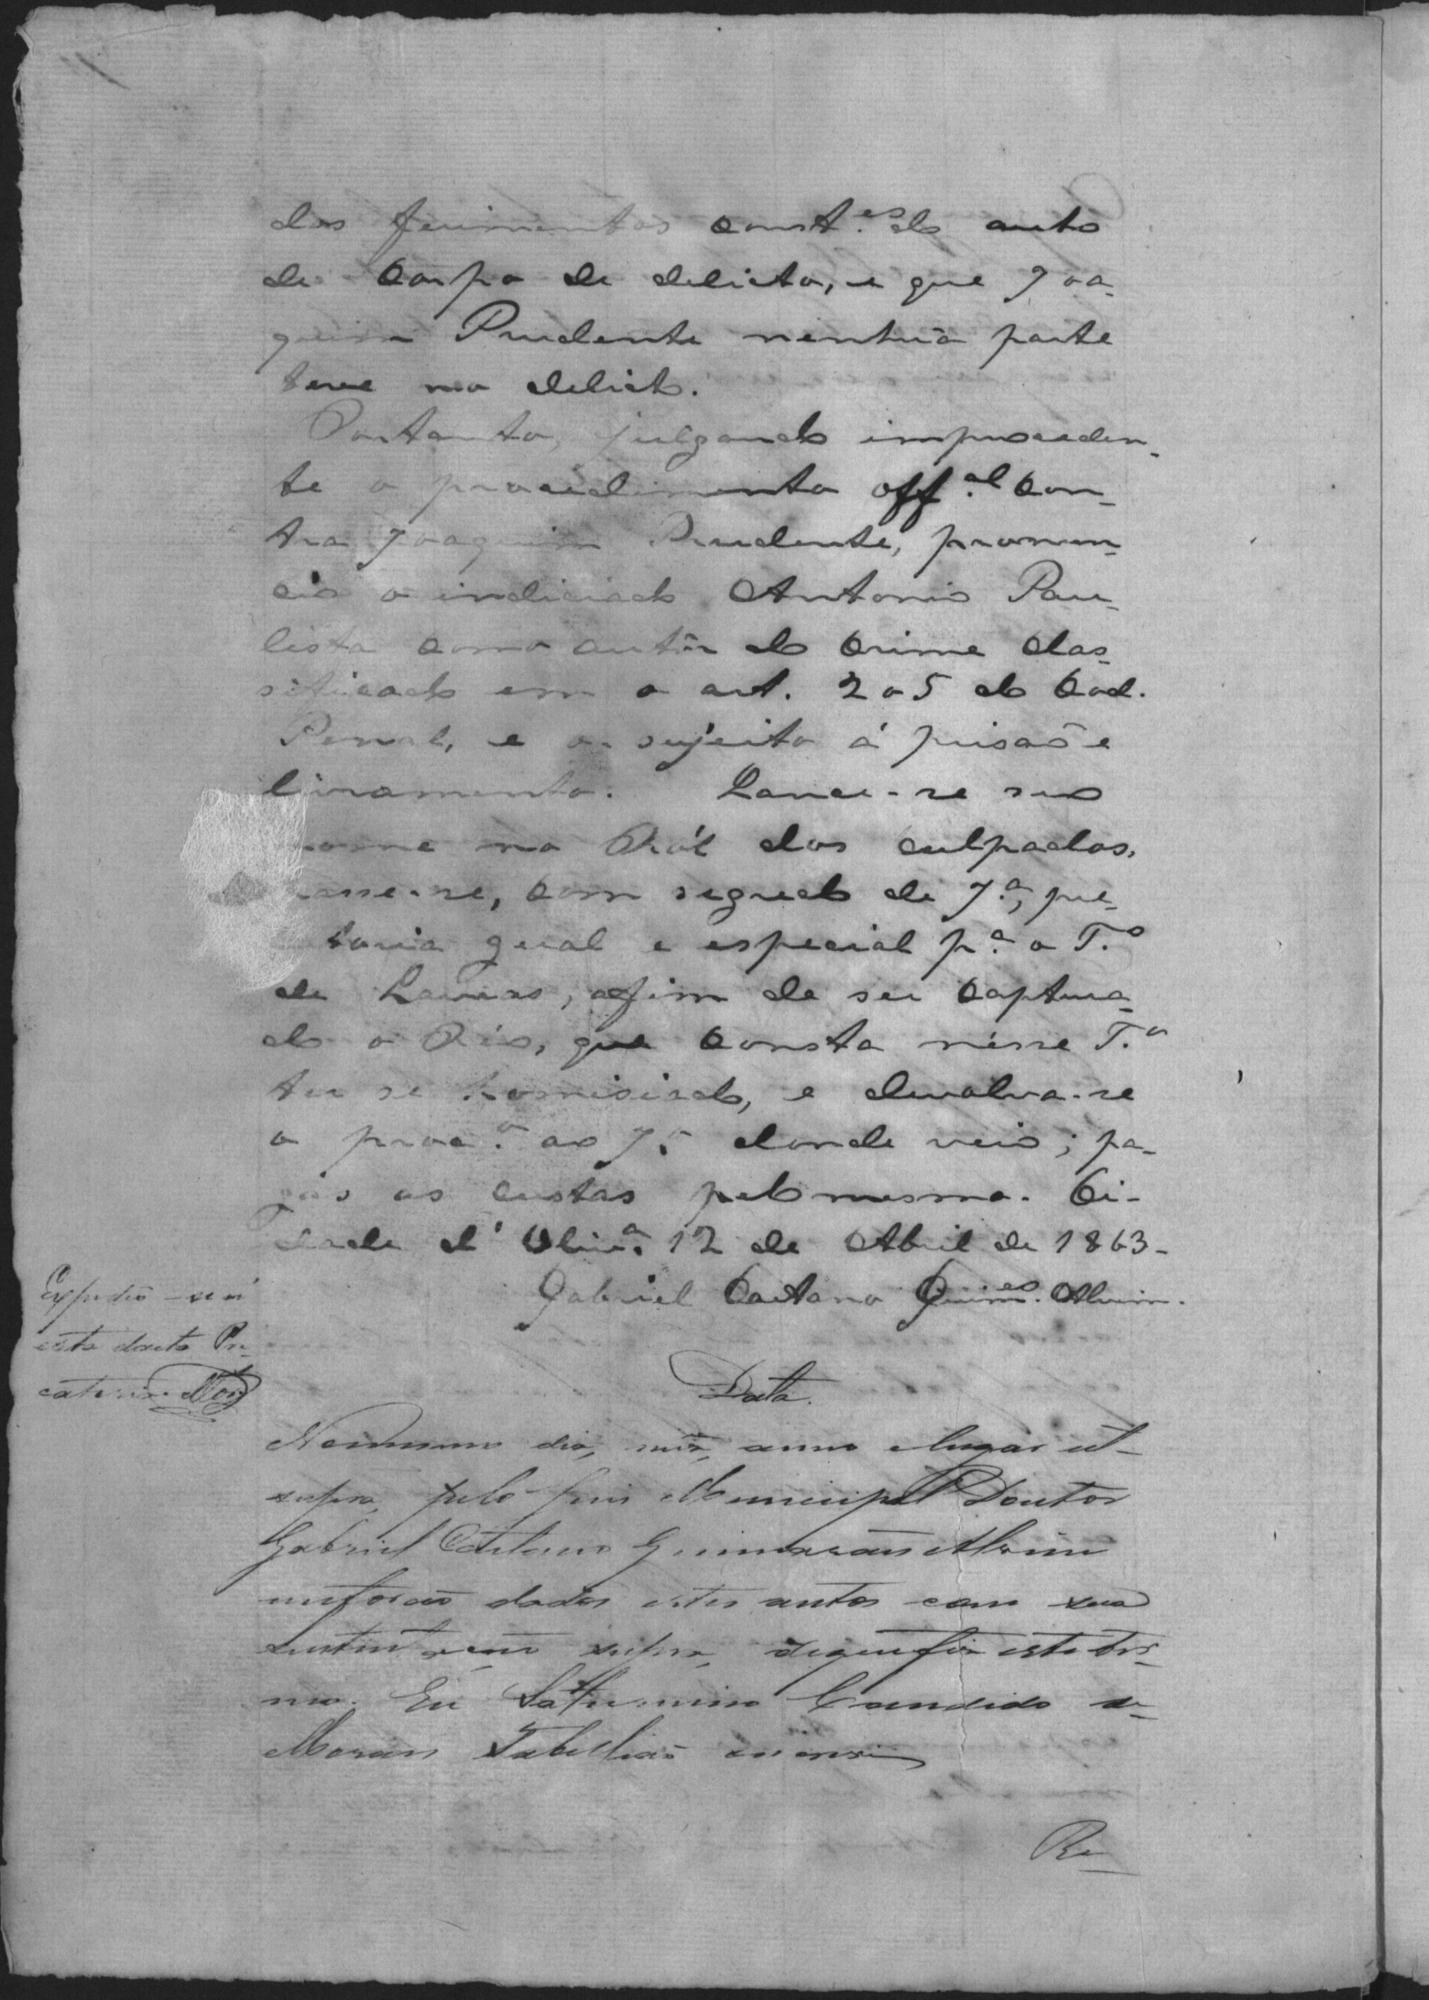 dos ferimentos const.es do auto
de Corpo de delicto, e que Joa-
quim Prudente nenhuã parte
teve no delicto.
Portanto, julgando improceden-
te o procedimento off.al con-
tra Joaquim Prudente, pronun-
cio o indiciado Antonio Pau-
lista como autôr do crime clas-
sificado em o art. 205 do Cod.
Penal, e o sujeito á prisaõ e
livramento. Lance-se seo
nome no Ról dos culpados,
passe-se, com segredo de J.a, pre-
catoria geral e especial p.a o T.o
de Lavras, afim de ser captura-
do o Réo, que consta nésse T.o
ter se homisiado, e devolva-se
o proc.o ao J.o donde veio; pa-
gas as custas pelo mesmo. Ci-
dade d'Oliv.a 12 de Abril de 1863-
Gabriel Caetano Guim.es Alvim.
Expedio-se n'
esta data Pre-
catoria. Mor.
Data.
No mesmo dia, mês, anno e lugar ut-
supra, pelo Juis Municipal Doutor
Gabriel Caetano Guimarães Alvim
me foraõ dados estes autos com sua
sustentação supra, de que fis este ter-
mo. Eu Saturnino Candido de
Moraes Tabelliaõ escrevi
Re-